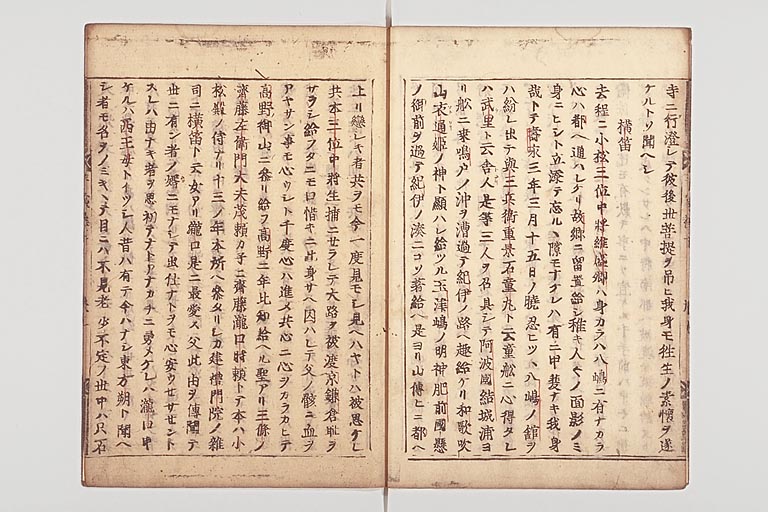 寺ニ行澄シテ彼後世菩提ヲ吊ヒ我身モ往生ノ素懐ヲ遂
ケルトソ聞ヘシ
横笛
去程ニ小松三位中将維盛卿ハ身カラハ八嶋ニ有ナカラ
心ハ都ヘ通ハレケリ故郷ニ留置給シ稚キ人々ノ面影ノミ
身ニヒシト立添テ忘ルヽ隙モナケレハ有ニ甲斐ナキ我身
哉トテ壽永三年三月十五日ノ暁忍ヒツヽ八嶋ノ舘ヲ
ハ紛レ出テ與三兵衛重景石童丸ト云童舩ニ心得タレ
ハ武里ト云舎人是等三人ヲ召具シテ阿波國結城浦ヨ
リ舩ニ乗鳴戸ノ沖ヲ漕過テ紀伊ノ路ヘ趣給ケリ和歌吹
山衣通姫ノ神ト顕ハレ給ヘル玉津嶋ノ明神肥前國懸
ノ御前ヲ過テ紀伊ノ湊ニコソ着給ヘ是ヨリ山傳ヒニ都ヘ
上リ戀シキ者共ヲモ今一度見モシ見ヘハヤトハ被思ケレ
共本三位中将生捕ニセラレテ大路ヲ被渡京鎌倉耻ヲ
サラシ給フタニモ口惜キニ此身サヘ囚ハレテ父ノ骸ニ血ヲ
アヤサン事モ心ウシトテ千度心ハ進メ共心ニ心ヲカラカヒテ
高野御山ニ参リ給フ高野ニ年比知給ヘル聖アリ三條ノ
齋藤左衛門大夫茂頼カ子ニ齋藤瀧口時頼トテ本ハ小
松殿ノ侍ナリ十三ノ年本所ヘ参タリシカ建禮門院ノ雜
司ニ横笛ト云女アリ瀧口是ニ最愛ス父此由ヲ傳聞テ
世ニ有ン者ノ婿ニモナシテ出仕ナトヲモ心安ウセサセント
スレハ由ナキ者ヲ思初テナトアナカチニ勇メケレハ瀧口申
ケルハ西王母トイツシ人昔ハ有テ今ハナシ東方朔ト聞ヘ
シ者モ名ヲノミキヽテ目ニハ不見老少不定ノ世中ハ只石